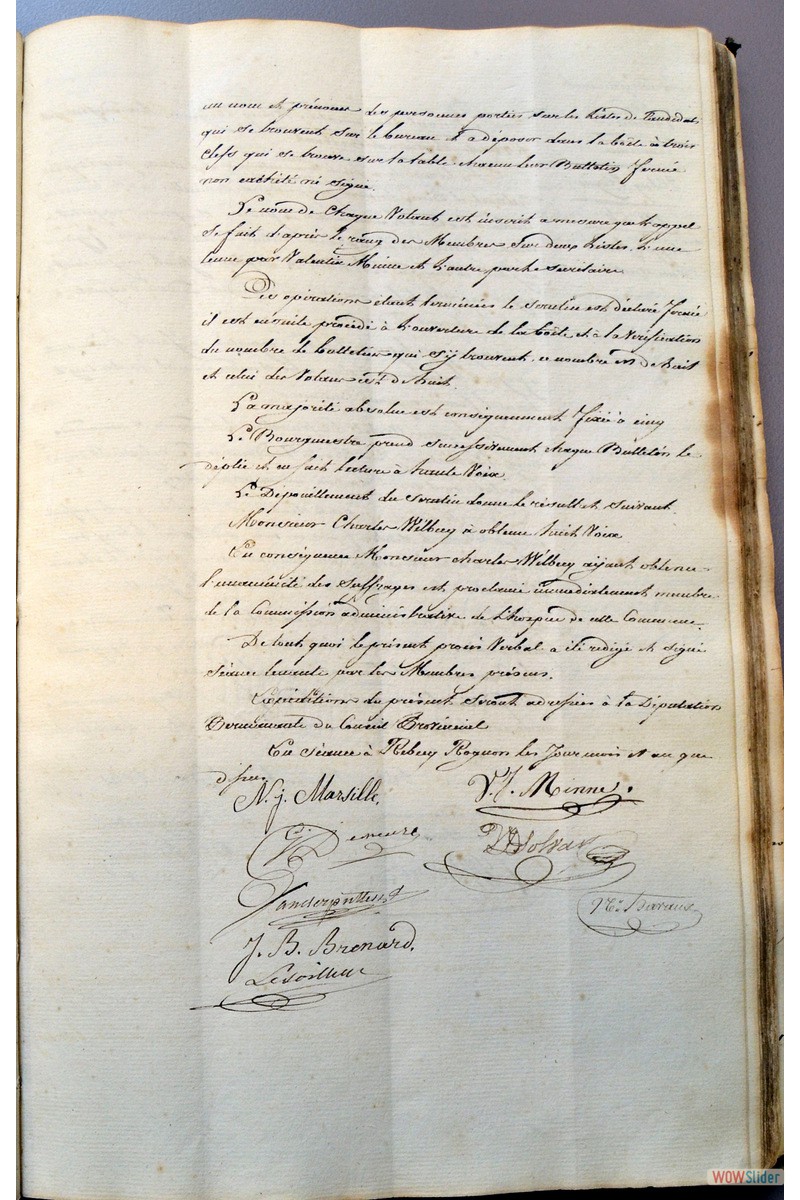 un nom et prénoms des personnes portées sur les listes de Candidats
qui se trouvent sur le bureau et a déposer dans la boîte à trois
clefs qui se trouve sur la table chacun leur Bulletin fermé
non cacheté ni signé.
Le nom de chaque Votant est inscrit a mesure que l'appel
se fait d'après le rang des Membres sur deux listes, l'une
tenue par Valentin Minne et l'autre par le Secrétaire
Ces opérations étant terminées le scrutin est déclaré fermé
il est ensuite procédé à l'ouverture de la boîte et à la Vérification
du nombre de bulletins qui s'y trouvent, ce nombre est de huit
et celui des Votans est de huit.
La majorité absolue est conséquemment fixée à cinq
Le Bourgmestre prend successivement chaque Bulletin le
déplie et en fait lecture à haute Voix.
Le Dépouillement du Scrutin donne le résultat suivant.
Monsieur Charles Wilbecq a obtenu huit Voix
En conséquence Monsieur charles Wilbecq ayant obtenu
l'unanimité des suffrages est proclamé immédiatement membre
de la Commission administrative de l'hospice de cette Commune.
De tout quoi le présent procès Verbal a été rédigé et signé
séance tenante par les Membres présens.
Expéditions du présent seront adressées à la Députation
Permanente du Conseil Provincial
En séance à Rebecq Rognon les jour mois et an que
dessus
N. j. Marsille,
V. J. Minne.
J. B. Brenard.